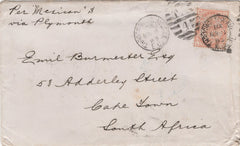 Per Mexican's
via Plymouth
Emil Burmester Esq
53 Adderley Street
Cape Town
South Africa